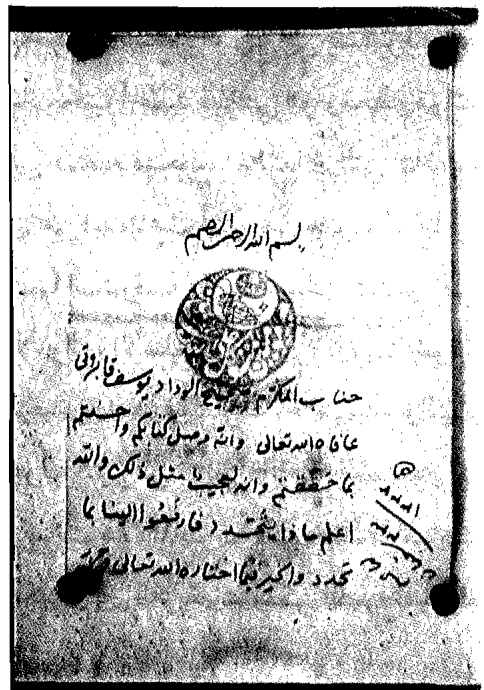 بسم الله الرحمن الرحيم
جناب المكرم الوداد يوسف
عافاه الله تعالى وانه وصل كتابكم واحسنتم
بما حققتم وانه ليعجبنا مثل ذلك والله
اعلم ماذا يتجدد فارفعوا الينا بما
تجدد والخير فيما اختاره الله تعالى